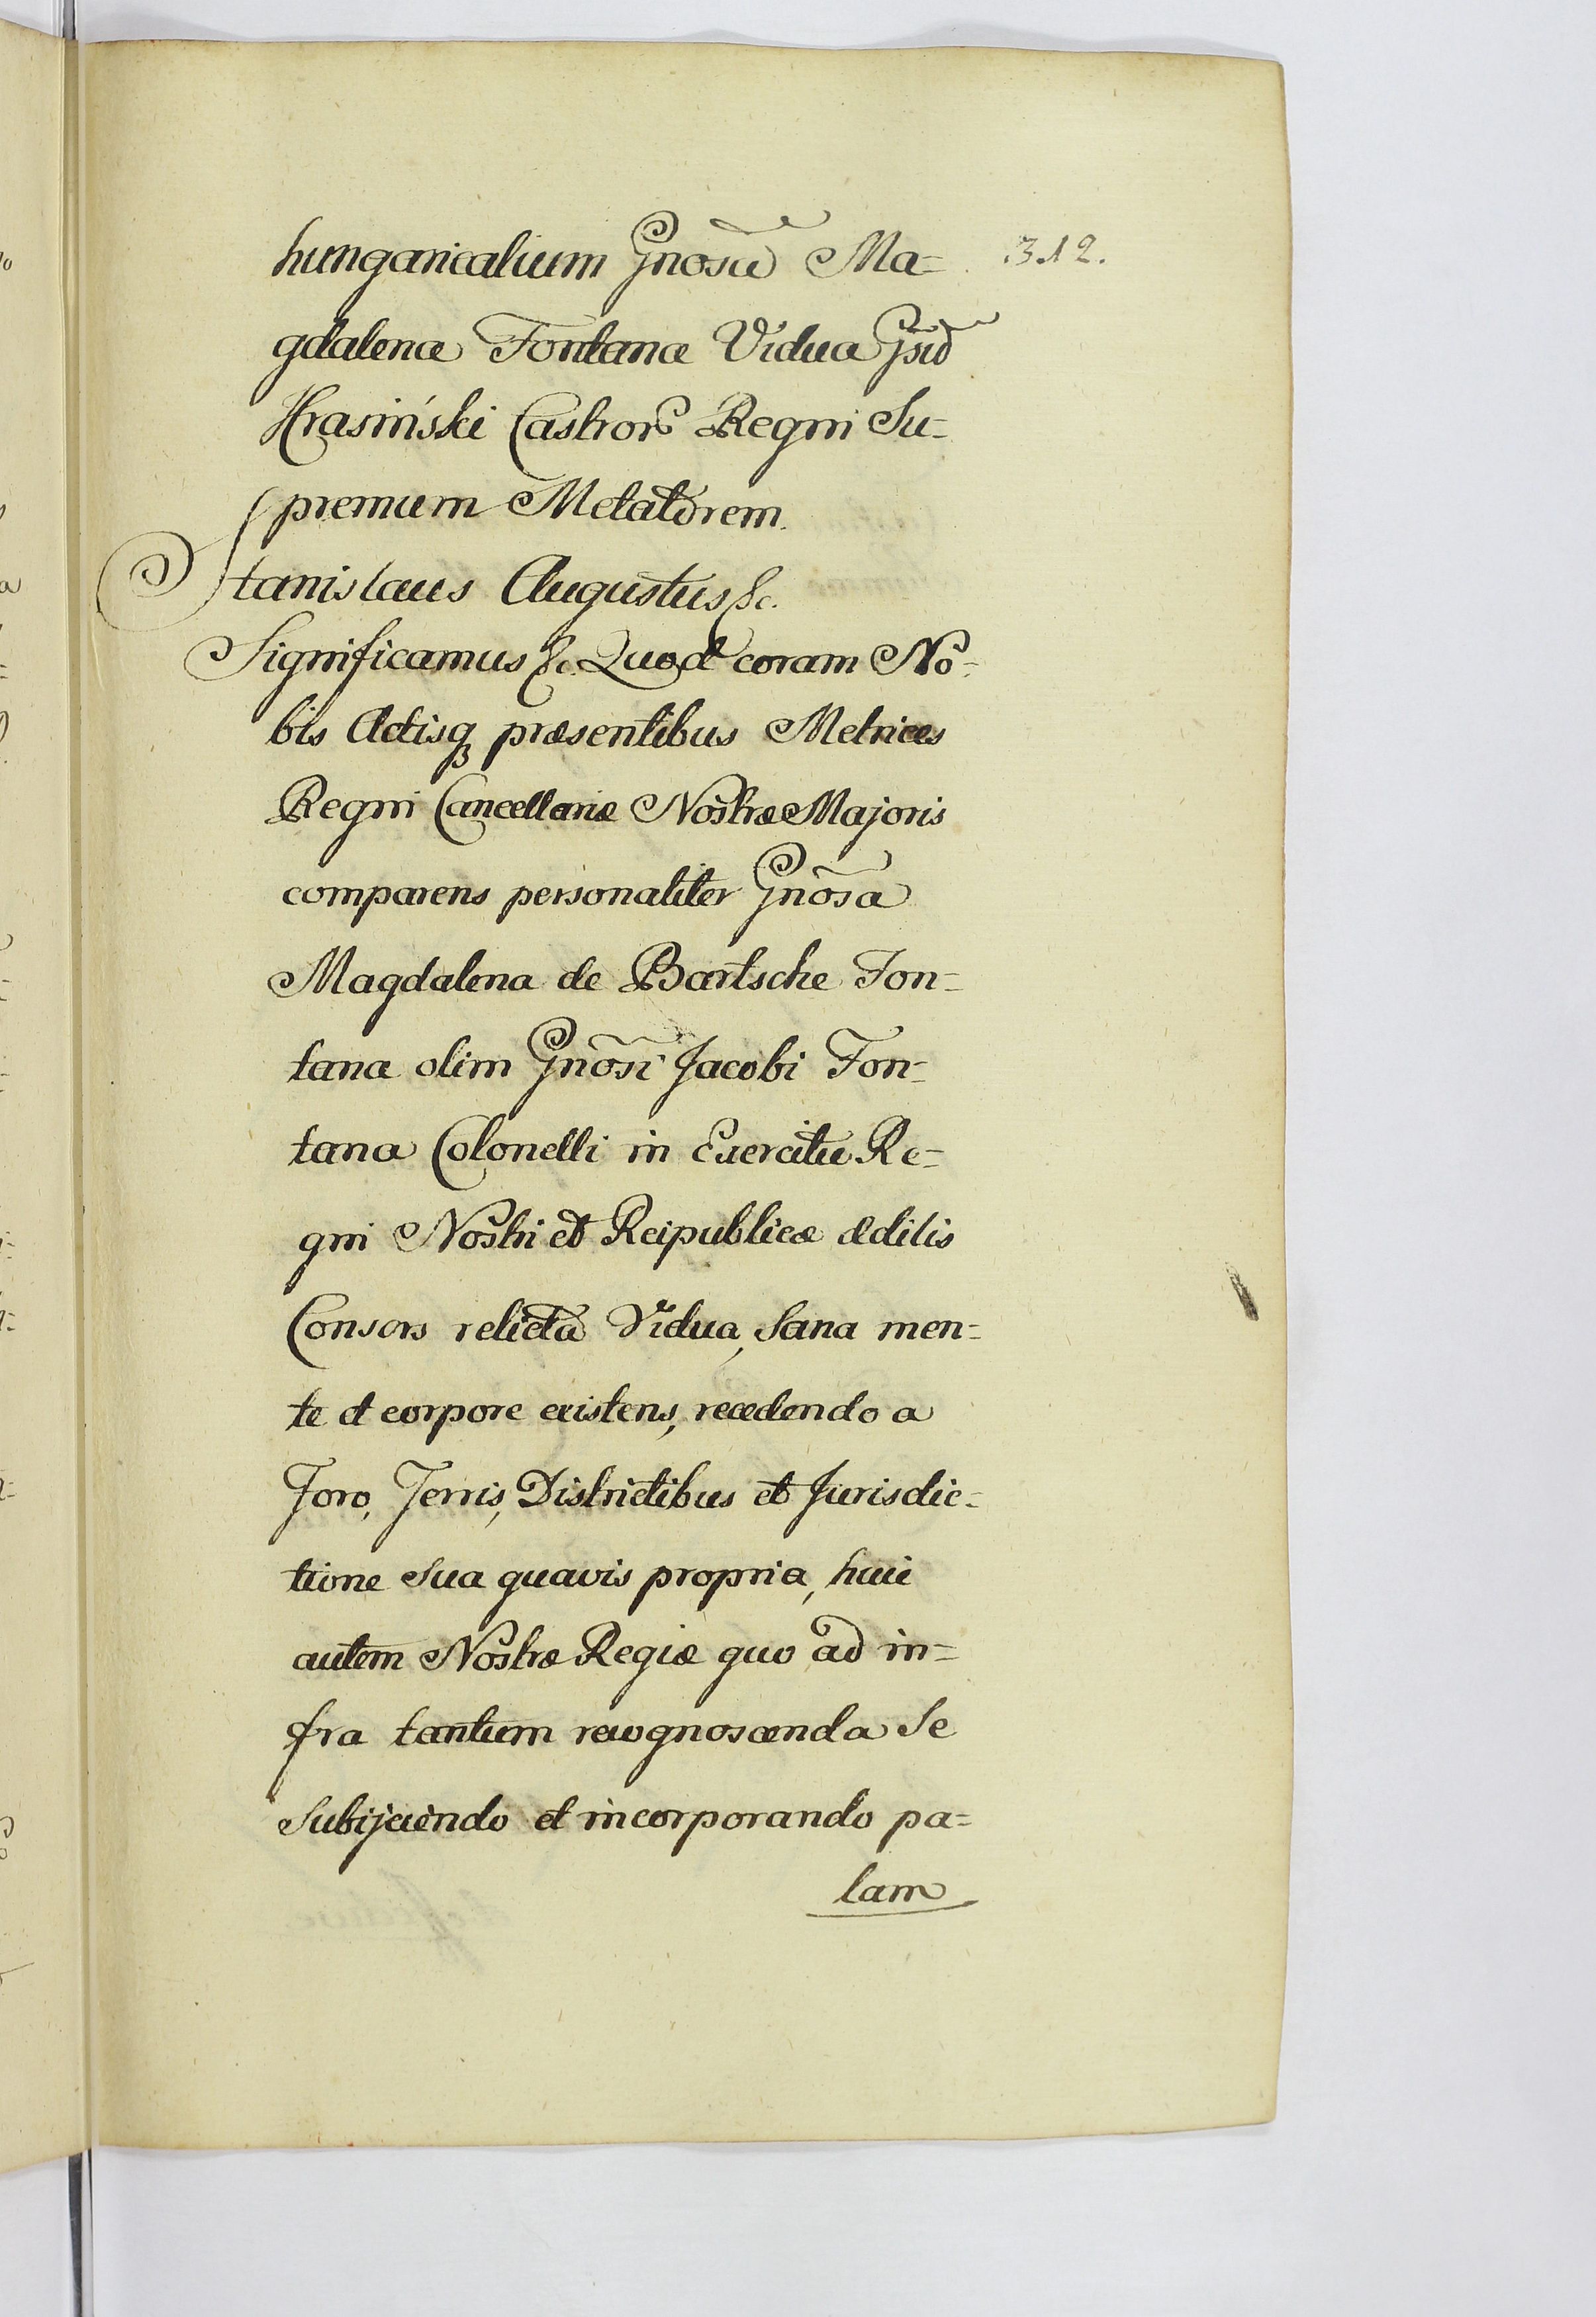 hungaricalium Gnosæ Ma=
312.
gdalenæ Fontanæ Vidua
Krasiński Castror Regni Su=
premum Metatorem.
Stanislaus Augustus &c.
Significamus &c. Quod coram No=
bis Actisq præsentibus Metrices
Regni Cancellariæ Nostræ Majoris
comparens personaliter Gnõsa
Magdalena de Bartsche Fon=
tana olim Gnõsi Jacobi Fon=
tana Colonelli in Exercitu Re=
gni Nostri et Reipublicæ ædilis
Consors relicta Vidua, Sana men=
te et corpore existens, recedendo a
Foro, Terris, Districtibus et Jurisdic=
tione Sua quavis propria, huic
autem Nostræ Regiæ quo ad in=
fra tantum recognoscenda Se
Subijciendo et incorporando pa=
lam